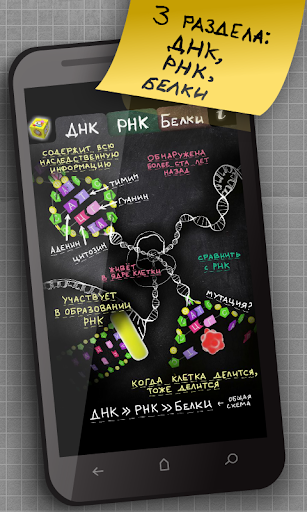 3 РАЗДЕЛА:
ДНК,
РНК,
БЕЛКИ
ДНК РНК БЕЛКИ i
СОДЕРЖИТ ВСЮ
НАСЛЕДСТВЕННУЮ
ИНФОРМАЦИЮ
ОБНАРУЖЕНА
БОЛЕЕ СТА ЛЕТ
НАЗАД
ТИМИН
ГУАНИН
АДЕНИН
ЦИТОЗИН
ЖИВЁТ
В ЯДРЕ КЛЕТКИ
СРАВНИТЬ
С РНК
УЧАСТВУЕТ
В ОБРАЗОВАНИИ
РНК
МУТАЦИЯ?
КОГДА КЛЕТКА ДЕЛИТСЯ,
ТОЖЕ ДЕЛИТСЯ
ДНК » РНК » БЕЛКИ ← ОБЩАЯ
СХЕМА